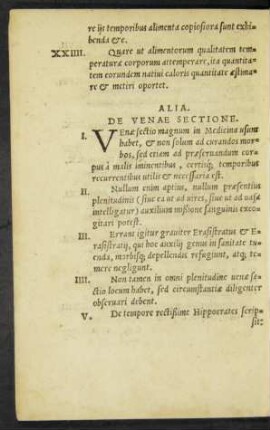 re ijs temporibus alimenta copiosiora sunt exhi-
benda &c.
XXIIII. Quare ut alimentorum qualitatem tem-
peraturæ corporum attemperare, ita quantita-
tem eorundem nativi caloris quantitate æstima-
re & metiri oportet.
ALIA.
DE VENAE SECTIONE.
I. VEnæ sectio magnum in Medicina usum
habet, & non solum ad curandos mor-
bos, sed etiam ad præservandum cor-
pus à malis iminentibus, certisq; temporibus
recurrentibus utilis & necessaria est.
II. Nullum enim aptius, nullum præsentius
plenitudinis (sive ea ut ad vires, sive ut ad vasa
intelligatur) auxilium missione sanguinis exco-
gitari potest.
III. Errant igitur graviter Erasistratus & E-
rasistratij, qui hoc auxilij genus in sanitate tu-
enda, morbisq; depellendis refugiunt, atq; te-
mere negligunt.
IIII. Non tamen in omni plenitudine uenæ se-
ctio locum habet, sed circumstantiæ diligenter
observari debent.
V. De tempore rectissimè Hippocrates scrip-
sit: